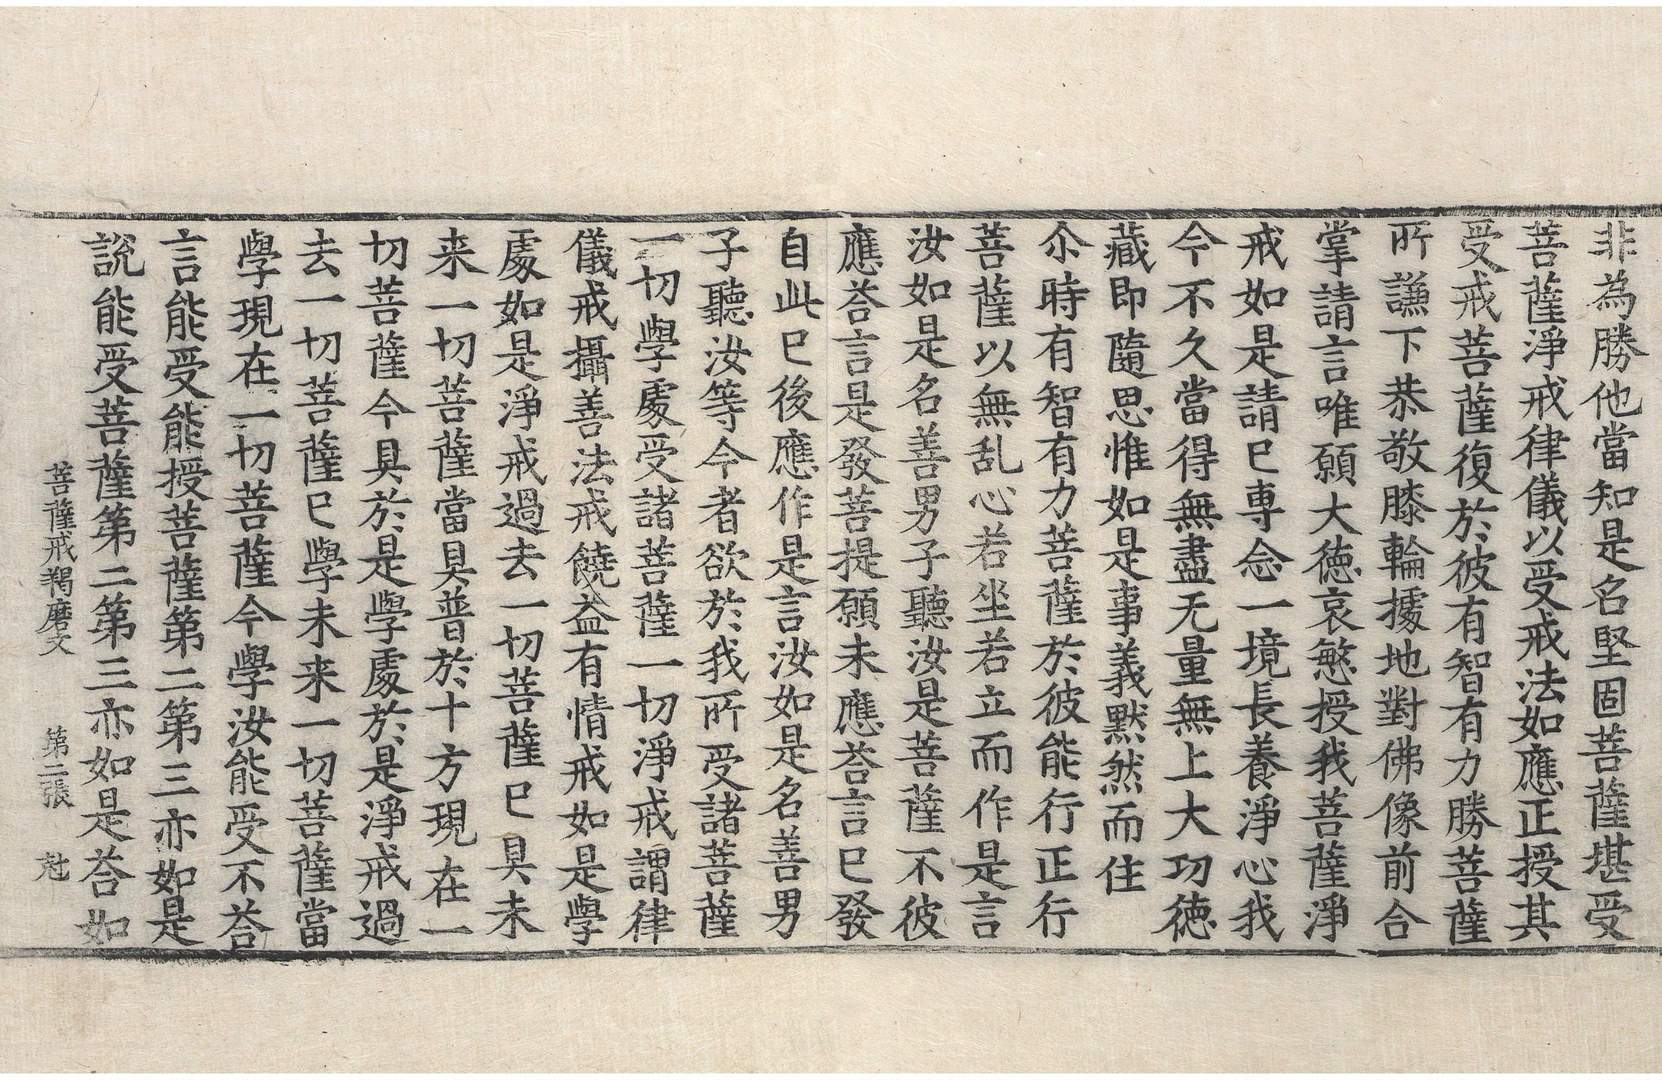 非為勝他當知是名堅固菩薩堪受
菩薩淨戒律儀以受戒法如應正授其
受戒菩薩復於彼有智有力勝菩薩
所謙下恭敬膝輪據地對佛像前合
掌請言唯願大徳哀愍授我菩薩淨
戒如是請已專念一境長養淨心我
今不久當得無盡无量無上大功徳
藏即隨思惟如是事義默然而住
尒時有智有力菩薩於彼能行正行
菩薩以無乱心若坐若立而作是言
汝如是名善男子聽汝是菩薩不彼
應荅言是發菩提願未應荅言已發
自此已後應作是言汝如是名善男
子聽汝等今者欲於我所受諸菩薩
一切學處受諸菩薩一切淨戒謂律
儀戒攝善法戒饒益有情戒如是學
處如是淨戒過去一切菩薩已具未
来一切菩薩當具普於十方現在一
切菩薩今具於是學處於是淨戒過
去一切菩薩已學未来一切菩薩當
學現在一切菩薩今學汝能受不荅
言能受能授菩薩第二第三亦如是
說能受菩薩第二第三亦如是荅如
菩薩戒羯磨文 第二張 尅